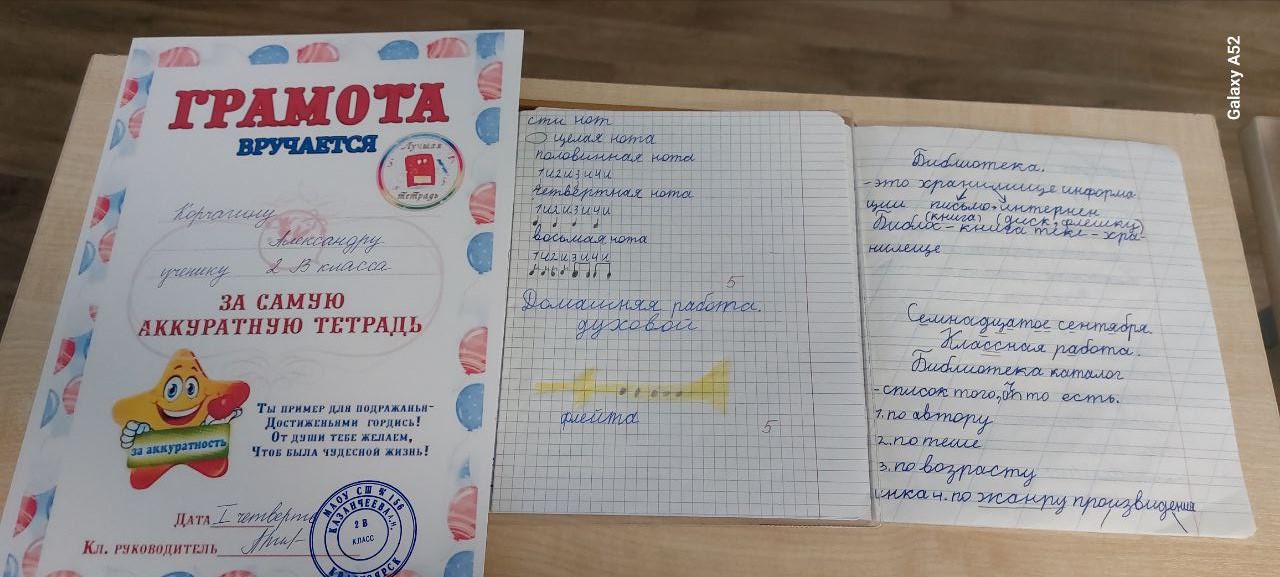 ГРАМОТА
ВРУЧАЕТСЯ
Лучшая
тетрадь
Корчагину
Александру
ученику 2 В класса
ЗА САМУЮ
АККУРАТНУЮ ТЕТРАДЬ
за аккуратность
Ты пример для подражанья-
Достиженьями гордись!
От души тебе желаем,
Чтоб была чудесной жизнь!
Дата I четверть
Кл. руководитель
МАОУ СШ № 156
КАЗАНЧЕЕВА
2 В
КЛАСС
КРАСНОЯРСК
сти нот
целая нота
половинная нота
1 и 2 и 3 и 4 и
четвертная нота
1 и 2 и 3 и 4 и
восьмая нота
1 и 2 и 3 и 4 и
5
Домашняя работа.
духовой
флейта
5
Библиотека.
-это хранилище информа
ции письмо интернен
(книга) (диск, флешку)
Библос-книга теке-хра-
нилеще
Семнадцатое сентября.
Классная работа.
Библиотека каталог
-список того, что есть.
1. по автору
2. по теме
3. по возрасту
4. по жанру произвидения
Galaxy A52